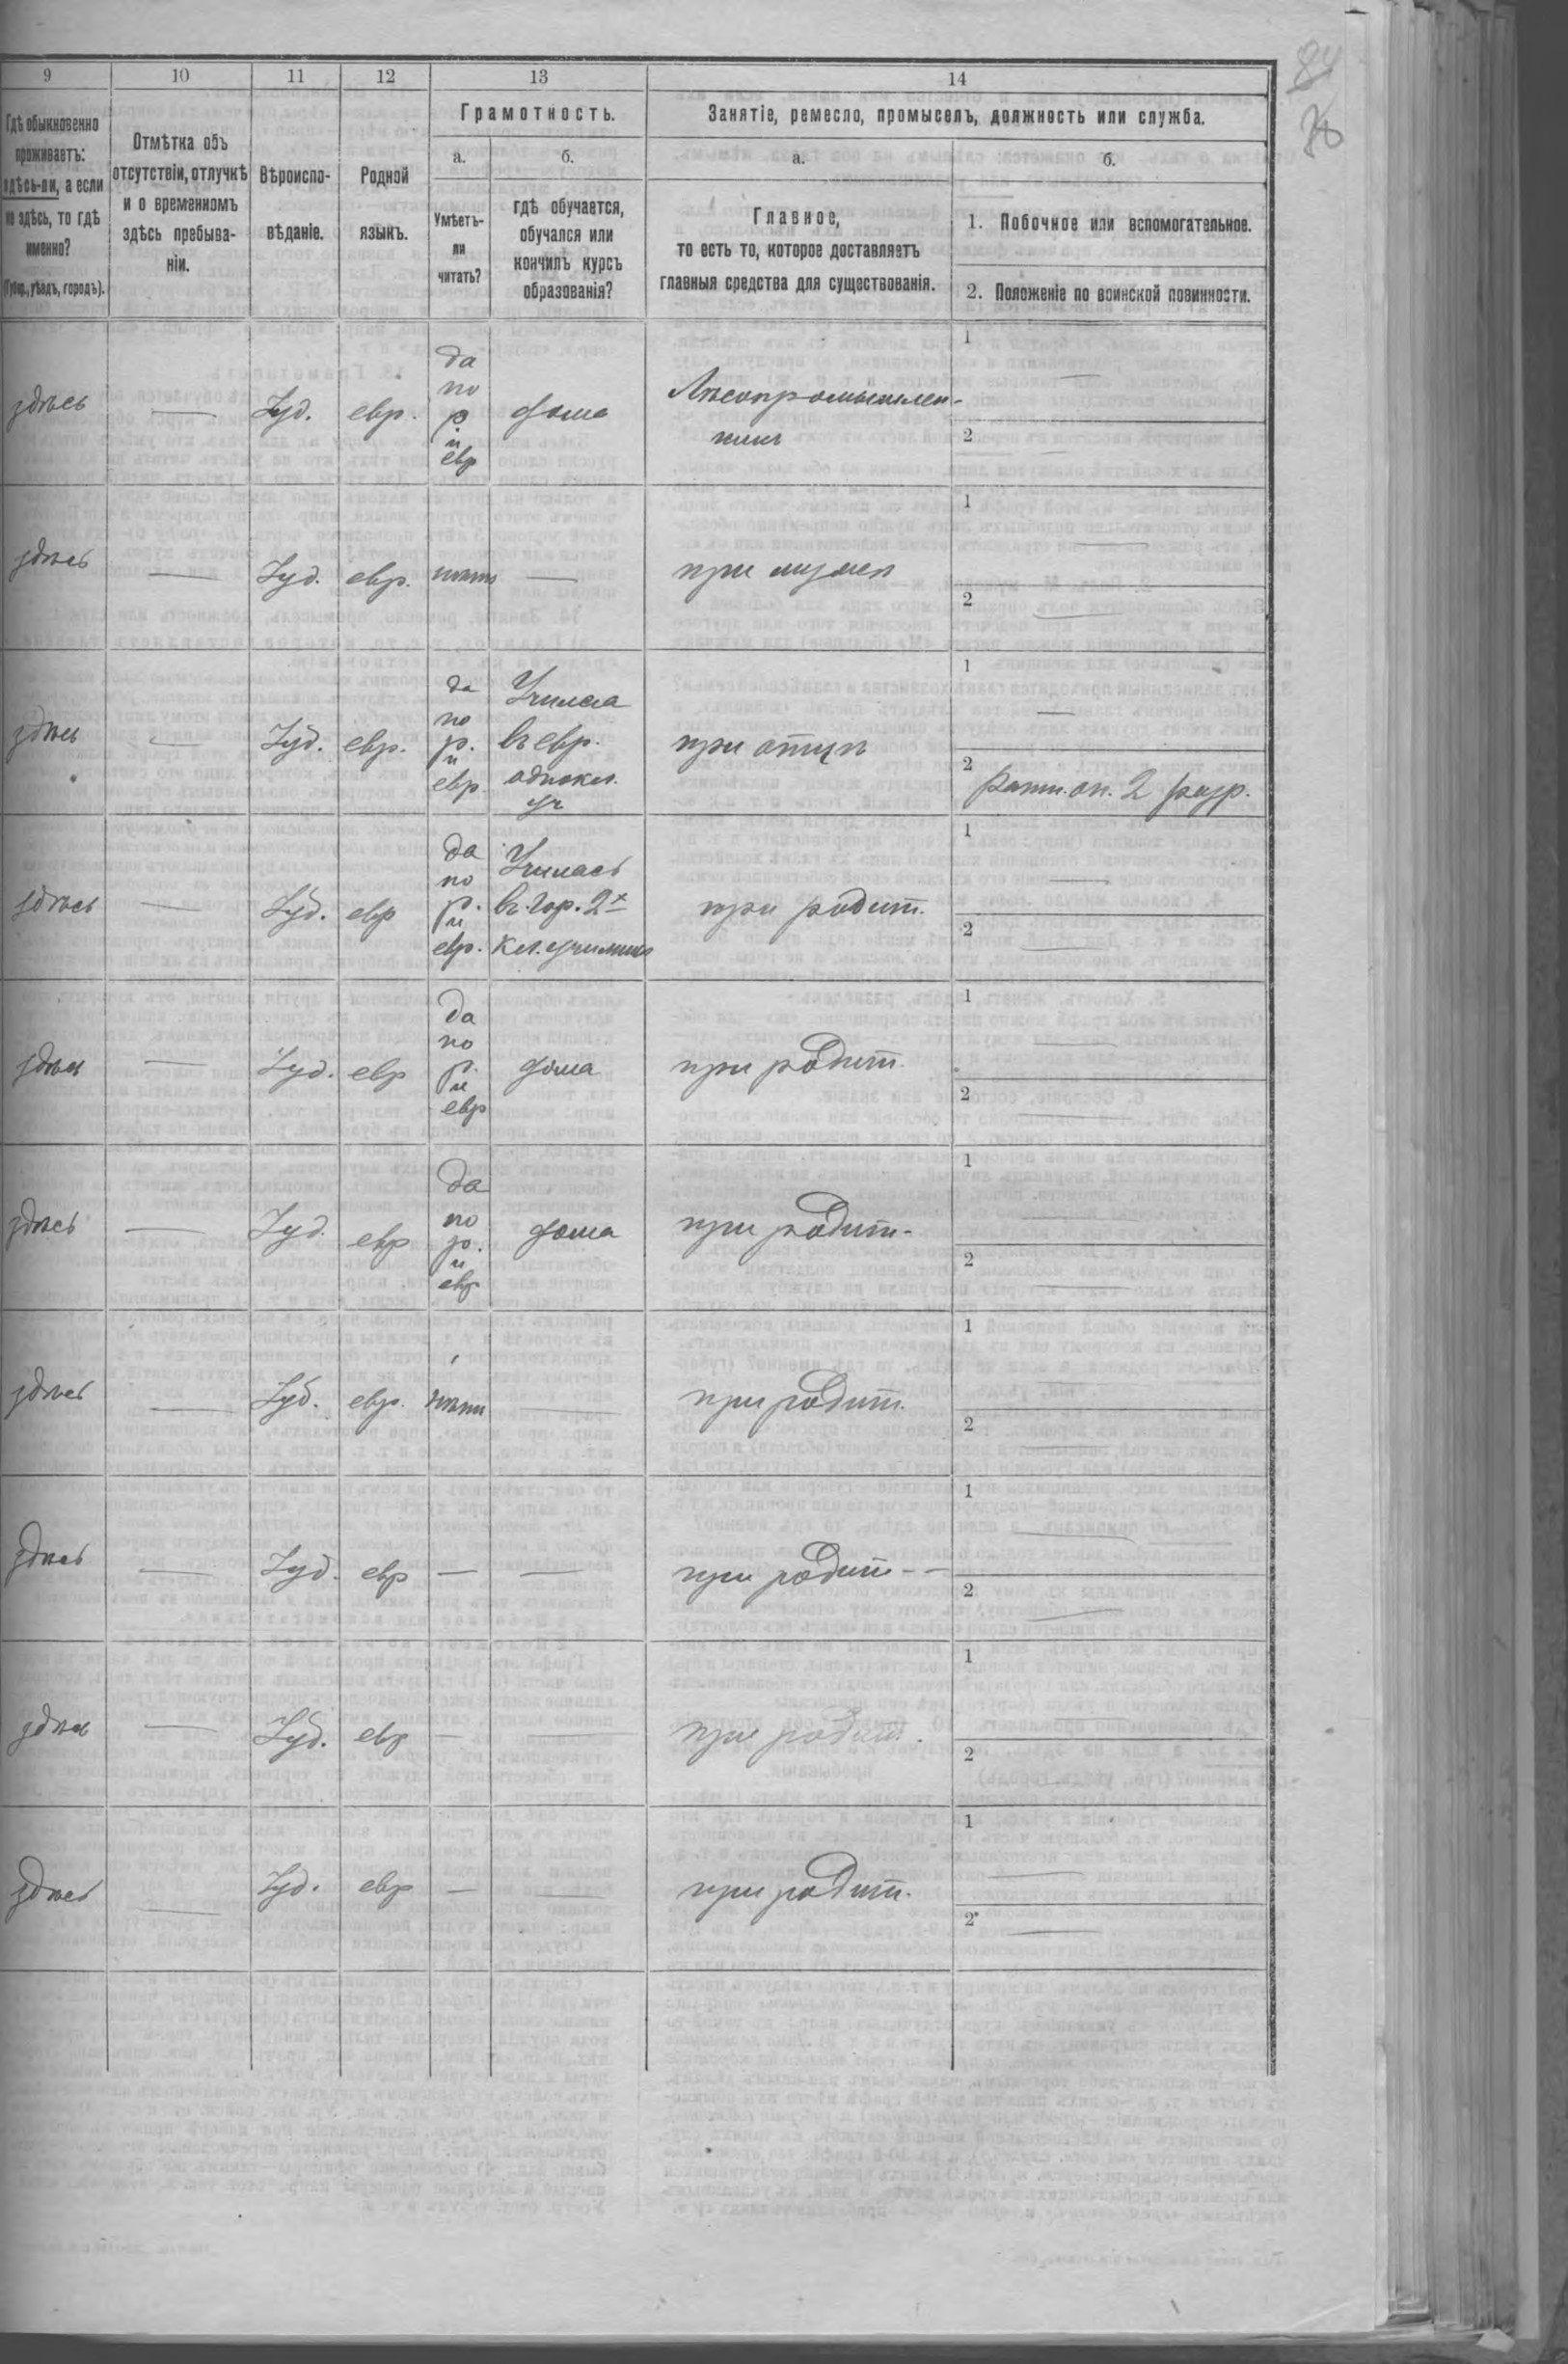 84
9 10 11 12 13 14
Гдѣ обыкновенно
проживаетъ:
здѣсь-ли, а если
не здѣсь, то гдѣ
именно?
(Губер., уѣздъ, городъ).
Отмѣтка объ
отсутствіи, отлучкѣ
и о временномъ
здѣсь пребыва-
ніи.
Вѣроиспо-
вѣданіе.
Родной
языкъ.
Грамотность.
а.
Умѣетъ-
ли
читать?
б.
гдѣ обучается,
обучался или
кончилъ курсъ
образованія?
Занятіе, ремесло, промыселъ, должность или служба.
а.
Главное,
то есть то, которое доставляетъ
главныя средства для существованія.
б.
1. Побочное или вспомогательное.
2. Положеніе по воинской повинности.
здѣсь — Іуд. евр. да
по
р.
и
евр
дома
Лѣсопромышлен-
никъ
1 —
2 —
здѣсь — Іуд. евр. нѣтъ — при мужѣ
1 —
2 —
здѣсь — Іуд. евр. да
по
р.
и
евр.
Училса
въ евр.
однокл.
уч
при отцѣ
1 —
2 Ратн. оп. 2 разр.
здѣсь — Іуд. евр да
по
р.
и
евр.
Училась
въ гор. 2х
кл. училищѣ
при родит.
1 —
2 —
здѣсь — Іуд. евр да
по
р.
и
евр
дома
при родит.
1 —
2 —
здѣсь — Іуд. евр да
по
р.
и
евр
дома
при родит.
1 —
2 —
здѣсь — Іуд. евр. нѣтъ — при родит.
1 —
2 —
здѣсь — Іуд. евр — — при родит.
1 —
2 —
здѣсь — Іуд. евр — — при родит.
1 —
2 —
здѣсь — Іуд. евр — — при родит.
1 —
2 —